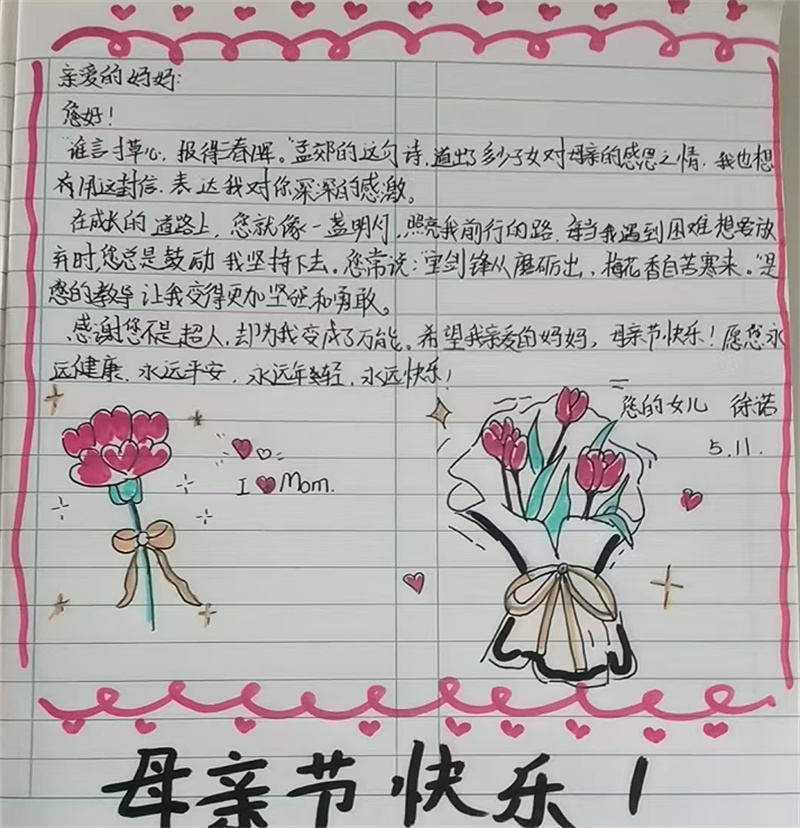 亲爱的妈妈:
您好!
"谁言寸草心,报得三春晖。"孟郊的这句诗,道出了多少子女对母亲的感恩之情,我也想
用这封信,表达我对你深深的感激。
在成长的道路上,您就像一盏明灯,照亮我前行的路,每当我遇到困难想要放
弃时您总是鼓励我坚持下去。您常说:"宝剑锋从磨砺出,梅花香自苦寒来。"是
您的教导让我变得更加坚强和勇敢。
感谢您不是超人,却为我变成了万能。希望我亲爱的妈妈,母亲节快乐!愿您永
远健康,永远平安,永远年轻,永远快乐!
您的女儿 徐诺
5.11.
I Mom.
母亲节快乐!